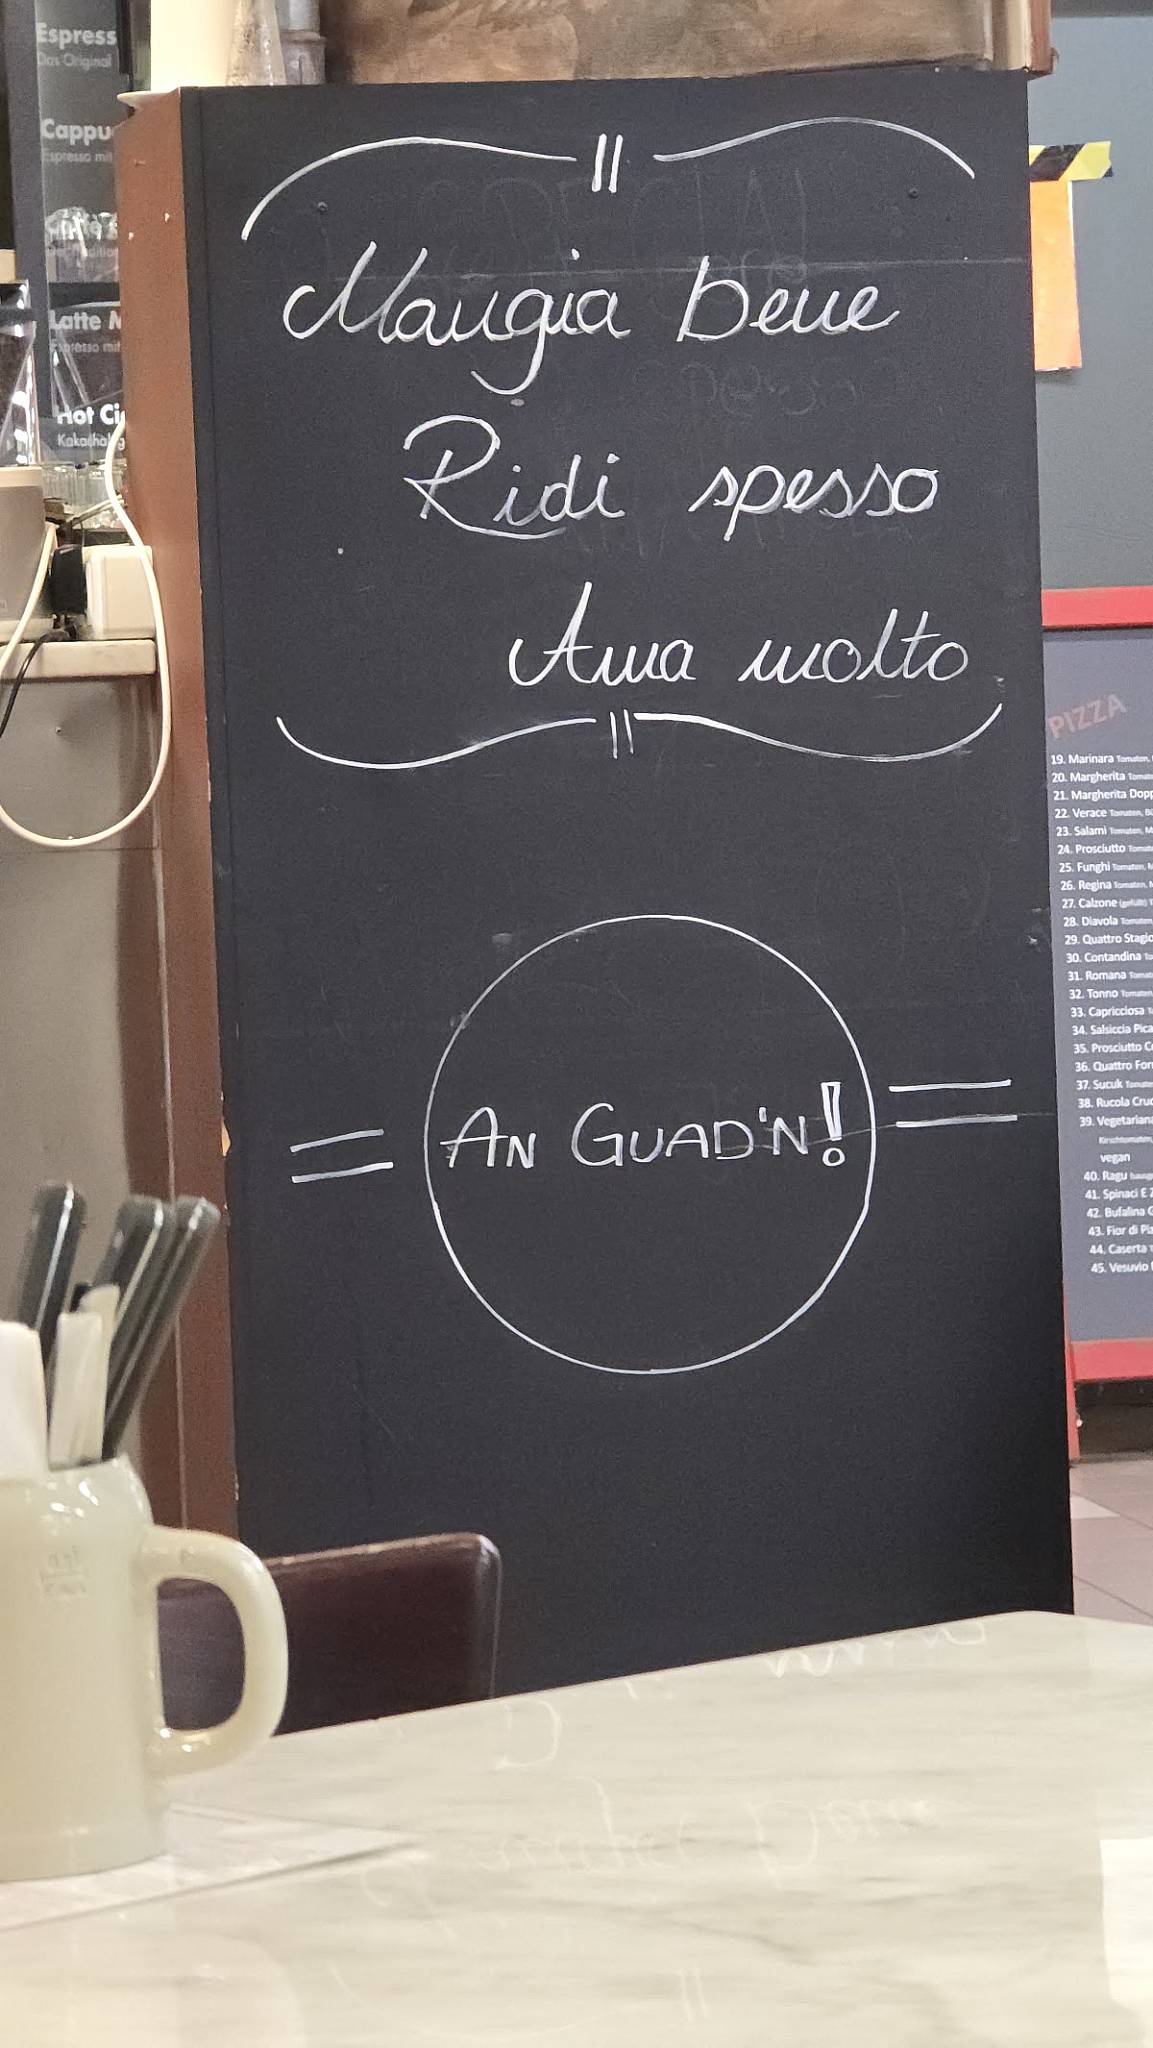 Espress
Das Original
Cappu
Espresso mit
Latte M
Espresso mit
Hot
Mangia bene
Ridi spesso
Ama molto
AN GUAD'N!
PIZZA
19. Marinara Tomaten,
20. Margherita Tomate
21. Margherita Dopp
22. Verace Tomaten,
23. Salami Tomaten, M
24. Prosciutto Tomate
25. Funghi Tomaten,
26. Regina Tomaten,
27. Calzone (gefüllt)
28. Diavola Tomaten
29. Quattro Stagio
30. Contandina To
31. Romana Tomat
32. Tonno Tomaten
33. Capricciosa
34. Salsiccia Pica
35. Prosciutto C
36. Quattro For
37. Sucuk Tomate
38. Rucola Cruc
39. Vegetariana
Kirschtomaten,
vegan
40. Ragu
41. Spinaci E
42. Bufalina
43. Fior di Pi
44. Caserta
45. Vesuvio